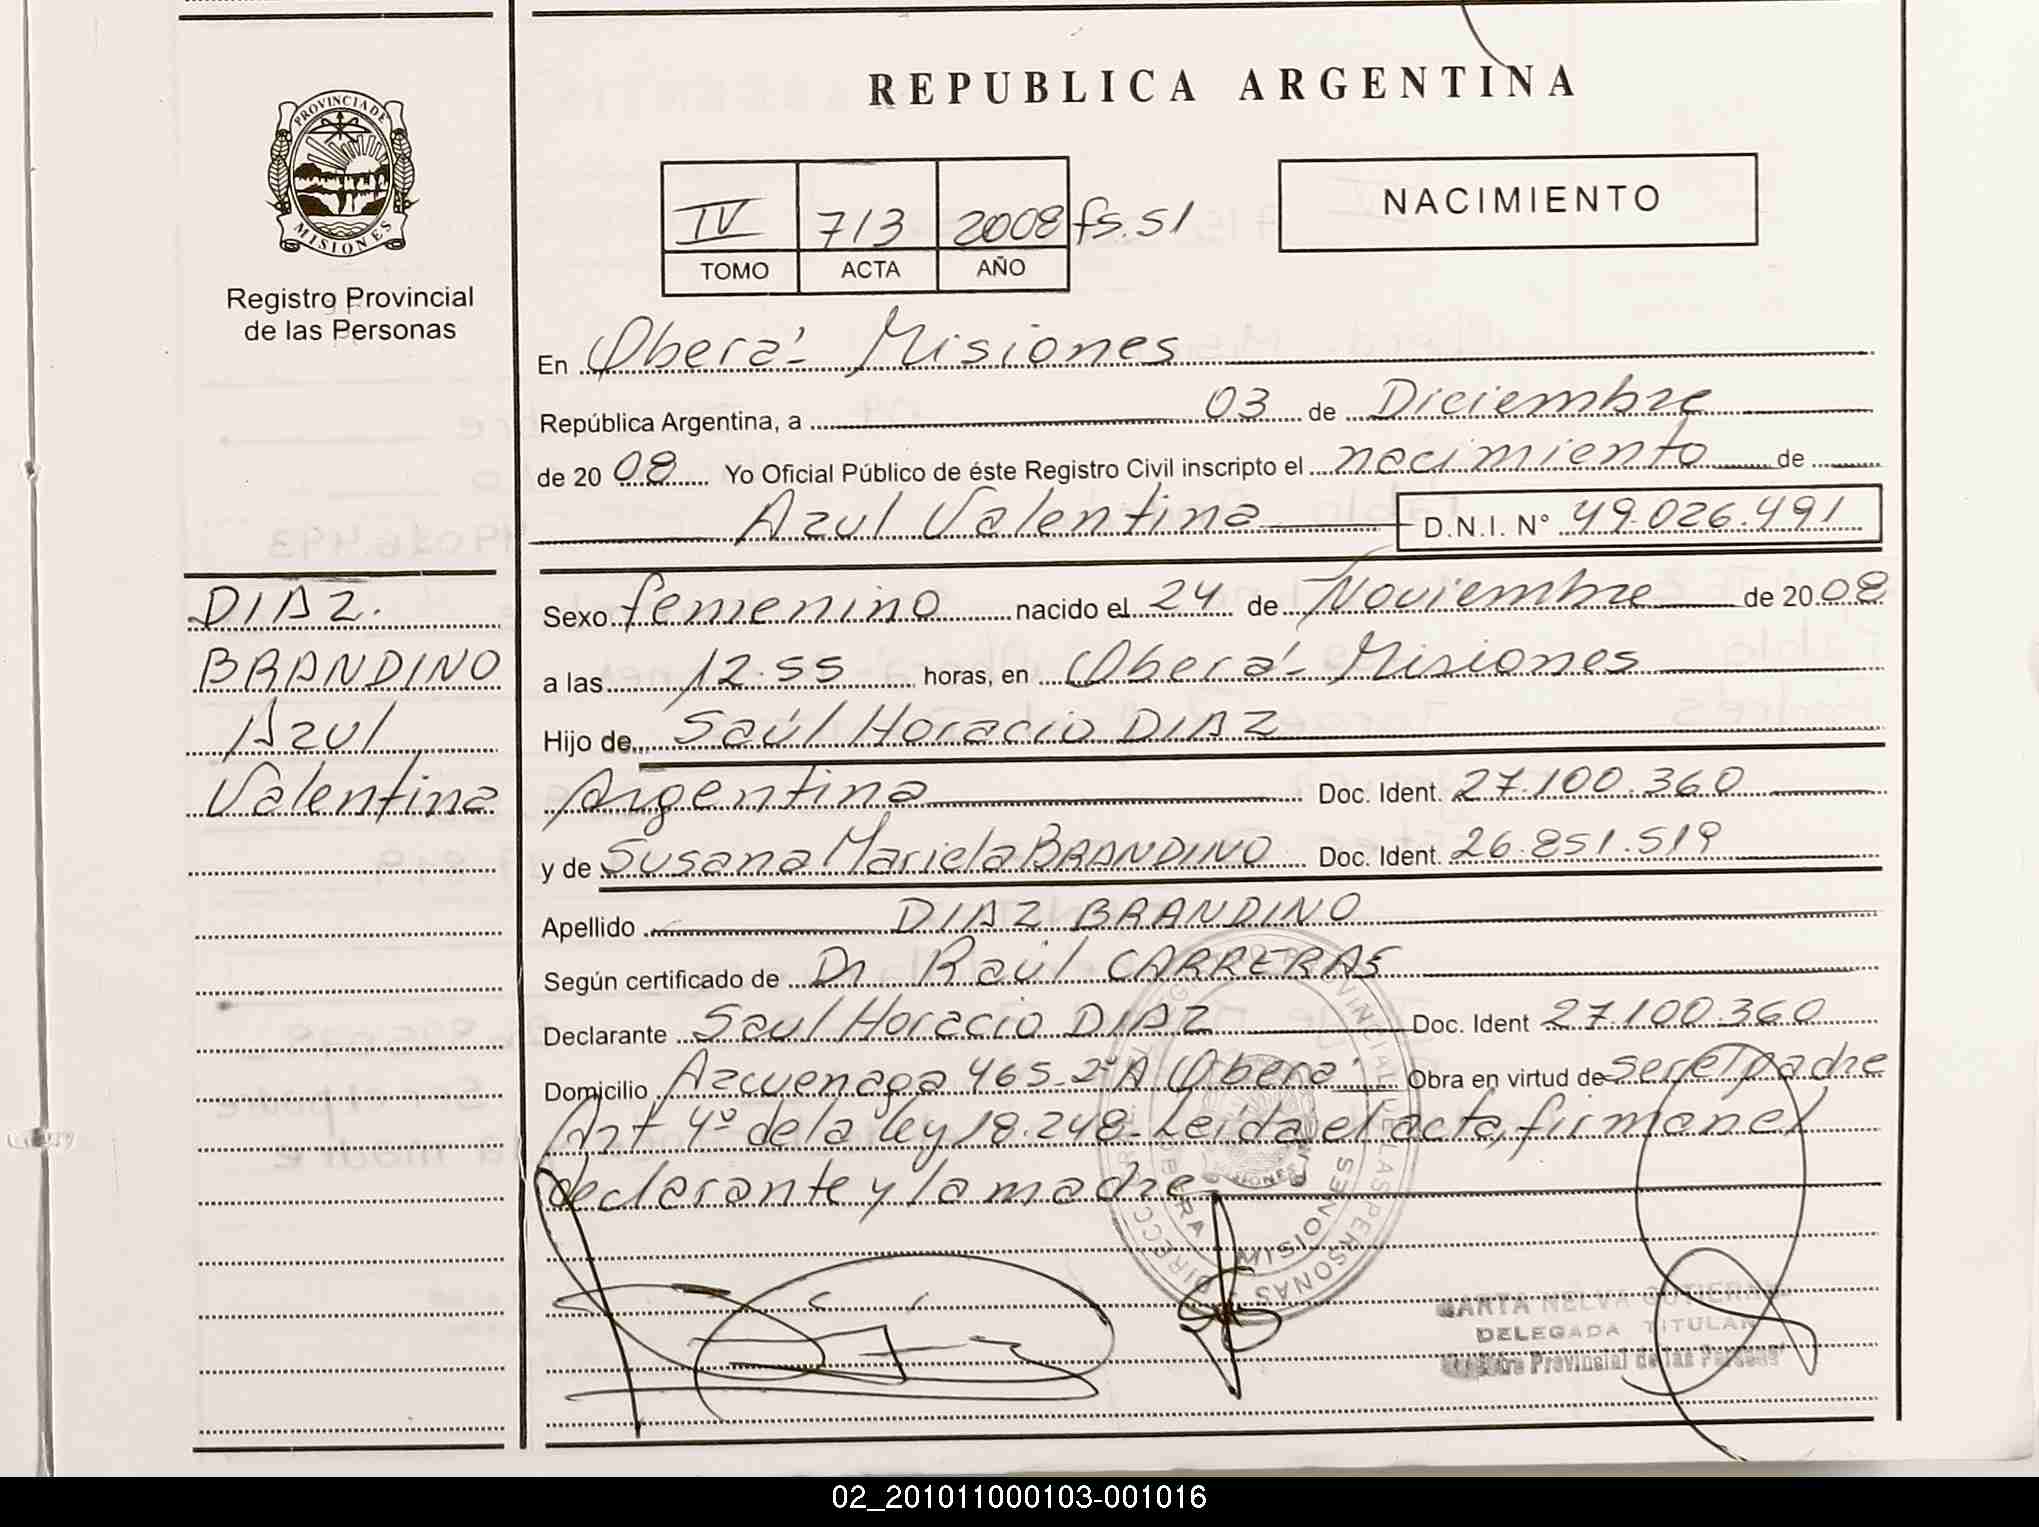 PROVINCIA DE
MISIONES
Registro Provincial
de las Personas
REPUBLICA ARGENTINA
IV 713 2008 fs. 51
TOMO ACTA AÑO
NACIMIENTO
En Oberá - Misiones
República Argentina, a 03 de Diciembre
de 20 08 Yo Oficial Público de éste Registro Civil inscripto el nacimiento de
Azul Valentina D.N.I. N° 49.026.491
DIAZ.
BRANDINO
Azul
Valentina
Sexo femenino nacido el 24 de Noviembre de 20 08
a las 12.55 horas, en Oberá - Misiones
Hijo de Saúl Horacio DIAZ
Argentina Doc. Ident. 27.100.360
y de Susana Mariela BRANDINO Doc. Ident. 26.851.519
Apellido DIAZ BRANDINO
Según certificado de Dr Raúl CARRERAS
Declarante Saul Horacio DIAZ Doc. Ident 27.100.360
Domicilio Azcuenaga 465-2º A Oberá Obra en virtud de ser el padre
Art 4º de la ley 18.248- Leída el acta, firman el
declarante y la madre
MISIONES
MARTA NELVA
DELEGADA TITULAR
Registro Provincial de las Personas
02_201011000103-001016